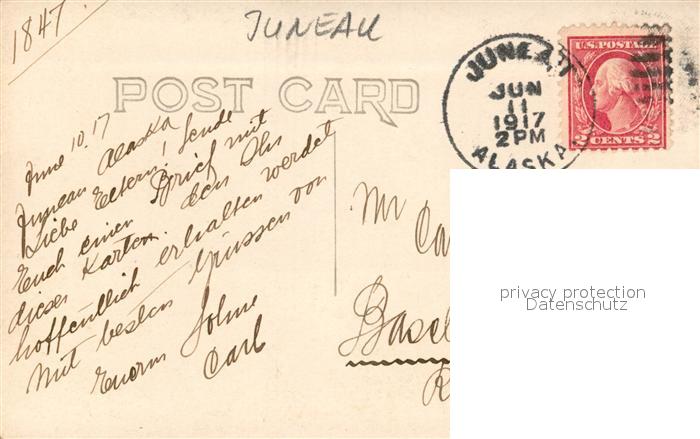 1847
JUNEAU
POST CARD
June 10.17
Juneau Alaska
Liebe Eltern! Sende
Euch einen Brief mit
dieser Karten. den Ihr
hoffentlich erhalten werdet
Mit besten Grüssen von
Eurem Sohne
Carl
Mr
Ca
Basel
R
JUNEAU
JUN
11
1917
2 PM
ALASKA
U.S. POSTAGE
2 CENTS 2
privacy protection
Datenschutz